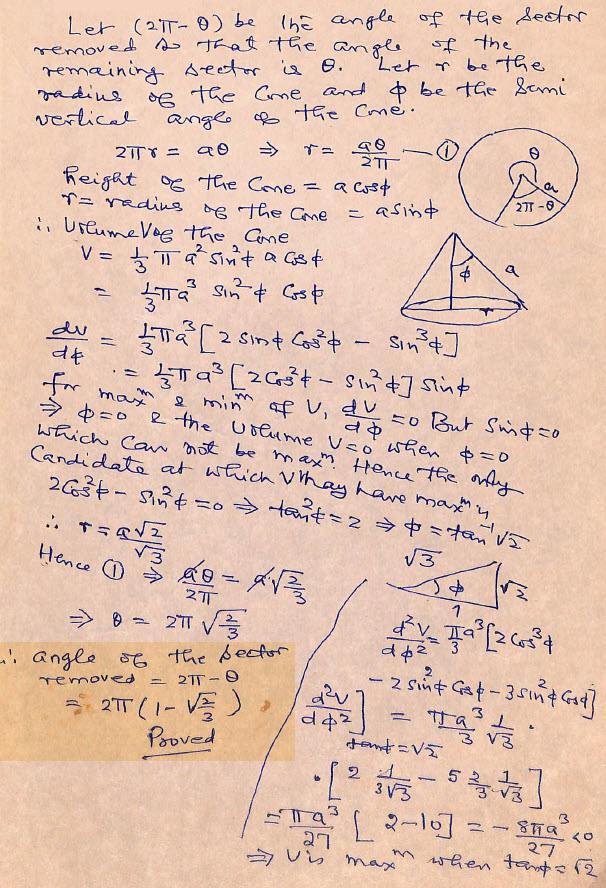 Let (2π-θ) be the angle of the Sector
removed so that the angle of the
remaining sector is θ. Let r be the
radius of the Cone and ϕ be the Semi
vertical angle of the Cone.
2πr = aθ ⇒ r = aθ/2π —①
height of the Cone = a cosϕ
r = radius of the Cone = a sinϕ
∴ Volume V of the Cone
V = 1/3 π a² sin²ϕ a cosϕ
= 1/3 πa³ sin²ϕ cosϕ
θ
a
2π-θ
ϕ
a
r
dv/dϕ = 1/3 πa³ [2 sinϕ cos²ϕ - sin³ϕ]
= 1/3 πa³ [2cos²ϕ - sin²ϕ] sinϕ
for maxᵐ & minᵐ of V, dV/dϕ = 0 But sinϕ=0
⇒ ϕ=0 & the Volume V=0 when ϕ=0
which can not be maxᵐ. Hence the only
Candidate at which V may have maxᵐ is
2cos²ϕ - sin²ϕ = 0 ⇒ tan²ϕ = 2 ⇒ ϕ = tan⁻¹√2
∴ r = a√2/√3
Hence ① ⇒ aθ/2π = a√(2/3)
⇒ θ = 2π √(2/3)
∴ angle of the Sector
removed = 2π-θ
= 2π(1-√(2/3))
Proved
√3
ϕ
√2
1
d²v/dϕ² = π/3 a³ [2cos³ϕ
- 2 sin²ϕ cosϕ - 3sin²ϕ cosϕ]
d²v/dϕ²] tanϕ=√2 = πa³/3 1/√3 .
. [2 1/3√3 - 5 2/3 1/√3]
= πa³/27 [2-10] = - 8πa³/27 <0
⇒ V is maxᵐ when tanϕ=√2